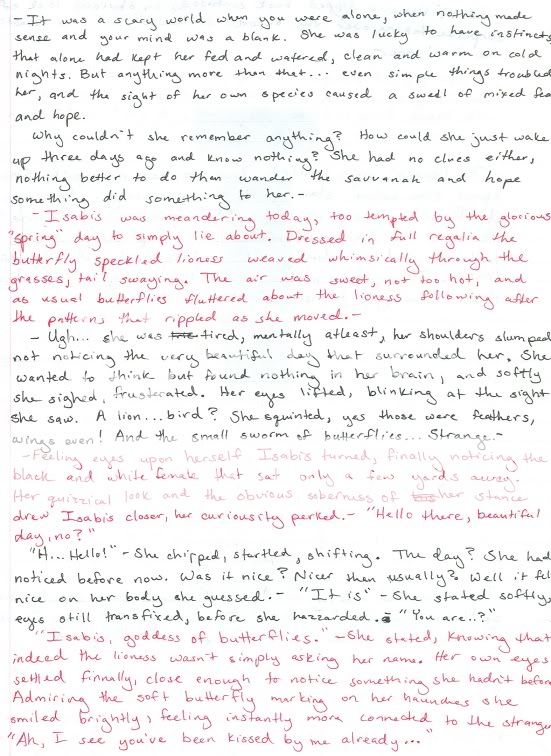 - It was a scary world when you were alone, when nothing made
sense and your mind was a blank. She was lucky to have instincts
that alone had kept her fed and watered, clean and warm on cold
nights. But anything more than that... even simple things troubled
her, and the sight of her own species caused a swell of mixed fea
and hope.
Why couldn't she remember anything? How could she just wake
up three days ago and know nothing? She had no clues either,
nothing better to do than wander the savvanah and hope
something did something to her.-
- Isabis was meandering today, too tempted by the glorious
"spring" day to simply lie about. Dressed in full regalia the
butterfly speckled lioness weaved whimsically through the
grasses, tail swaying. The air was sweet, not too hot, and
as usual butterflies fluttered about the lioness following after
the patterns that rippled as she moved.-
- Ugh... she was tired, mentally atleast, her shoulders slumped
not noticing the very beautiful day that surrounded her. She
wanted to think but found nothing in her brain, and softly
she sighed, frusterated. Her eyes lifted, blinking at the sight
she saw. A lion... bird? She squinted, yas those were feathers,
wings even! And the small sworm of butterflies... Strange.-
- Feeling eyes upon herself Isabis turned, finally noticing the
black and white female that sat only a few yards away.
Her quizzical look and the obvious soberness of her stance
drew Isabis closer, her curiousity perked.- "Hello there, beautiful
day, no?"
"H... Hello!" - She chirped, startled, shifting. The day? She had
noticed before now. Was it nice? Nicer than usually? Well it fel
nice on her body she guessed.- "It is" - She stated softly,
eyes still transfixed, before she hazzarded.- "You are..?"
"Isabis, goddess of butterflies." - She stated, knowing that
indeed the lioness wasn't simply asking her name. Her own eyes
settled finnally, close enough to notice something she hadn't before
Admiring the soft butterfly marking on her haunches she
smiled brightly, feeling instantly more connected to the strange
"Ah, I see you've been kissed by me already..."